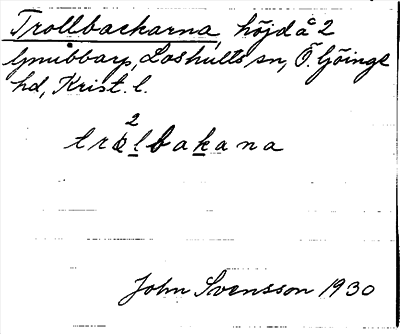 Trollbackarna, höjd å 2
Gnubbarp, Loshults sn, Ö. Göinge
hd, Krist. l.
2
trɵlbakana
John Svensson 1930